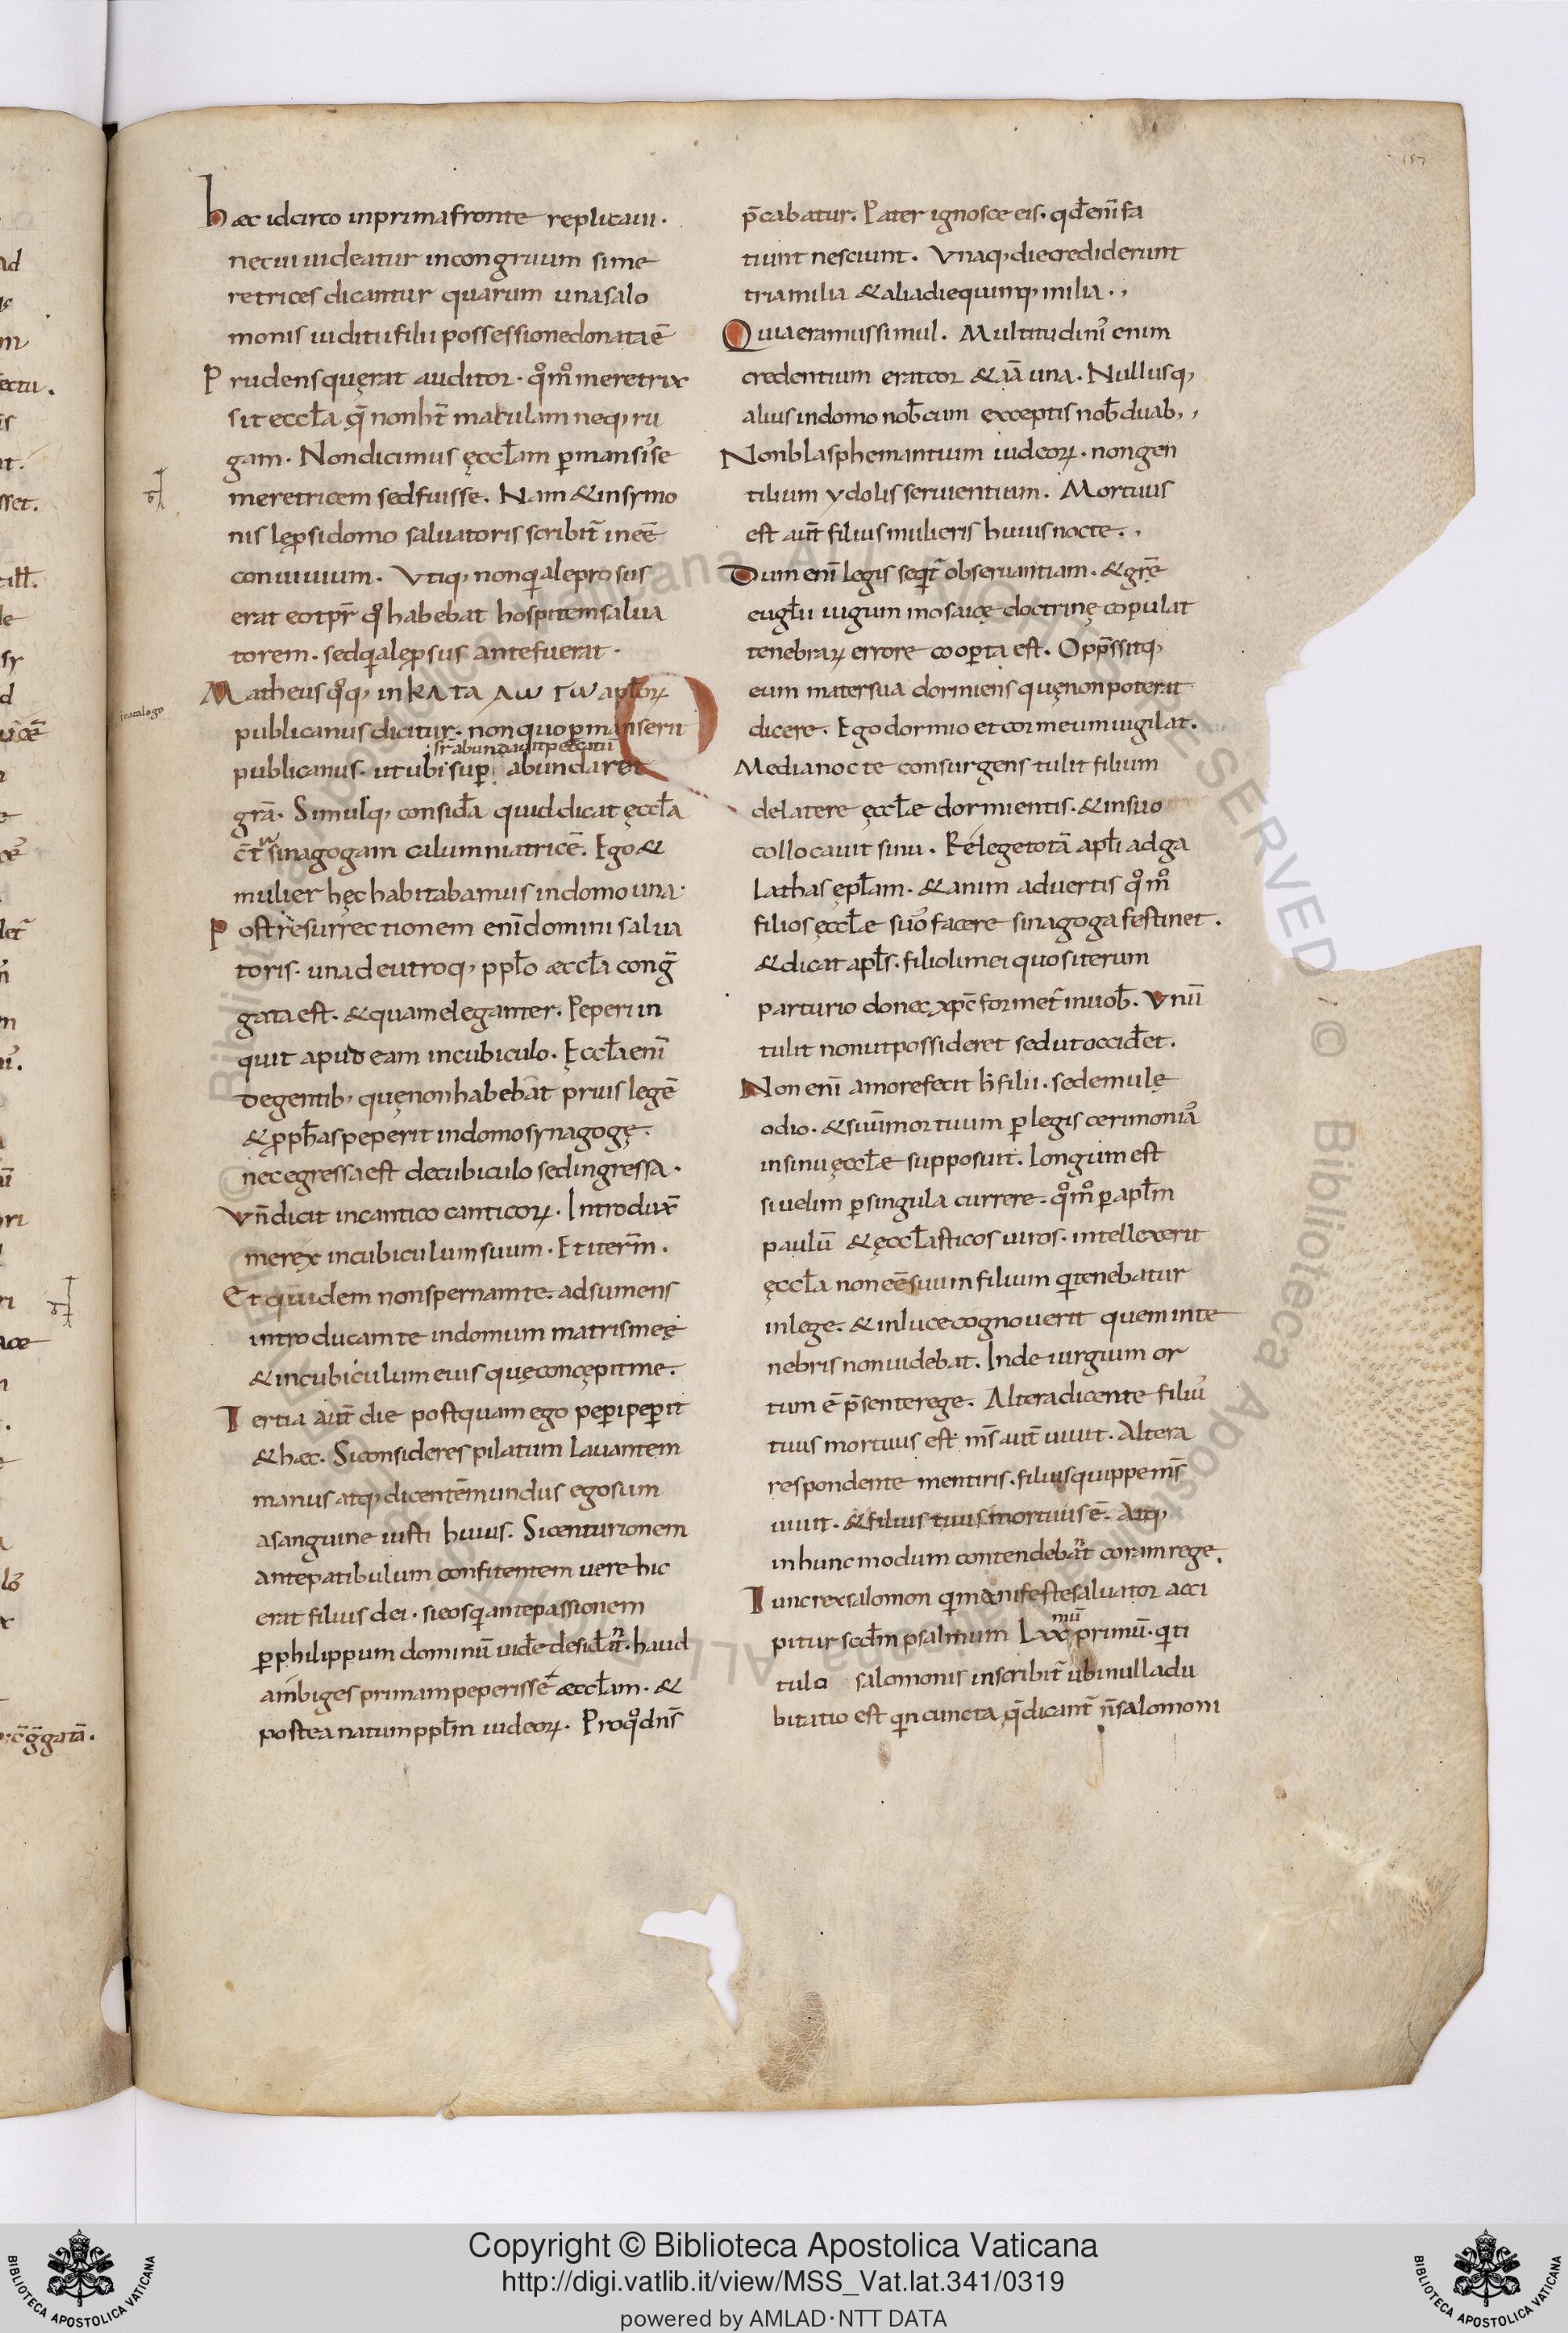 157
hæc idcirco inprimafronte replicaui.
necui uideatur incongruum sime
retrices dicantur quarum unasalo
monis iuditii filii possessionedonataē
Prudens quęrat auditor. qͦmͦ meretrix
sit eccl̄a q̄ nonhr̄ maculam neq; ru
gam. Nondicimus ęccl̄am p̱mansiśe
meretricem sedfuisse. Nam & insymo
nis lęp̱si domo saluatoris scribit̄ ineē
conuiuium. Vtiq; nonq̱a leprosus
erat eotp̄r qͦ habebat hospitem salua
torem. sedq̱a lęp̱sus antefuerat.
Matheus qͦq; in ΚΑ ΤΑ ΛѠ ΓѠ apl̄oꝝ
icatalogo
publicanus dicitur. non quo p̱manserit
sr̄abundauit peccatū
publicanus. ut ubi sup̱ abundaret
grā. Simulq; consid̄a quid dicat ęccl̄a
c̄t̄ ra sinagogam calumniatricē. Ego &
mulier hęc habitabamus in domo una.
Post resurrectionem eni̅ domini salua
toris. una de utroq; ppl̄o æccl̄a cong̅
gata est. & quam eleganter. Peperi in
quit apud eam incubiculo. Ęccl̄a eni̅
degentib; quęnonhabebat prius legē
& p̱ph̄as peperit indomo synagogę.
nec egressa est decubiculo sed ingressa.
Vn̄ dicit incantico canticoꝝ. Introdux̄
me rex incubiculum suum. Et iterm̄.
Et q̱uidem nonspernam te. adsumens
introducam te indomum matris meę
& incubiculum eius quę concępit me.
Tertia aut̄ die postquam ego pep̱i pep̱it
& hæc. Si consideres pilatum lauantem
manus atq; dicentē mundus ego sum
asanguine iusti huius. Si centurionem
ante patibulum confitentem uere hic
erat filius dei. si eos q̱ ante passionem
p̱ philippum dominū uid̄e desid̄aN̅t. haud
ambiges primam peperisse æccl̄am. &
postea natum ppl̄m iudeoꝝ. Pro qͦ dn̄s
p̄cabatur. Pater ignosce eis. qd̄ eni̅ fa
tiunt nesciunt. Vnaq; die crediderunt
tria milia & alia die quinq; milia.,
Quia eramus simul. Multitudini̓ enim
credentium erat cor & aīa una. Nullusq;
alius indomo nob̄cum exceptis nob̄ duab;,
Non blasphemantium iudeoꝝ. non gen
tilium ydolis seruientium. Mortuus
est aut̄ filius mulieris huius nocte.,
Dum eni̅ legis seq̱t̄ obseruantiam. & gr̄ę
eugl̄ii iugum mosaicę doctrinę copulat
tenebraꝝ errore coop̱ta est. Opp̄ssitq;
eum mater sua dormiens quę non poterit
dicere. Ego dormio et cor meum uigilat.
Media nocte consurgens tulit filium
de latere ęccl̄æ dormientis. & in suo
collocauit sinu. Relege totā apl̄i ad ga
lathas ępl̄am. & anim aduertis qͦmͦ
filios ęccl̄æ suoś facere sinagoga festinet.
& dicat apl̄s. filioli mei quos iterum
parturio donec xp̄c formet̄ in uob̄. Vnū
tulit non ut possideret sed ut occid̄et.
Non eni̅ amore fecit h̄ filii. sed emulę
odio. & suū mortuum p̱ legis cerimoniaś
in sinu ęccl̄æ supposuit. Longum est
si uelim p̱ singula currere. qͦmͦ p̱ apl̄m
paulū & ęccl̄asticos uiros. intellexerit
ęccl̄a non eē suum filium q̱ tenebatur
in lege. & in luce cognouerit quem in te
nebris non uidebat. Inde iurgium or
tum ē p̄sente rege. Altera dicente filiuś
tuus mortuus est. m̄s aut̄ uiuit. Altera
respondente mentiris. filius quippe m̄s
uiuit. & filius tuus mortuus ē. Atq;
in hunc modum contendebaN̅t coram rege.
Tunc rex salomon q̱ manifeste saluator acci
pitur secd̄m psalmum LXXmū primū. q̱ ti
tulo salomonis inscribit̄ ubi nulla du
bitatio est q̱n cuncta q̄ dicant̄ n̄ salomoni
Copyright © Biblioteca Apostolica Vaticana
http://digi.vatlib.it/view/MSS_Vat.lat.341/0319
powered by AMLAD·NTT DATA
BIBLIOTECA APOSTOLICA VATICANA
BIBLIOTECA APOSTOLICA VATICANA